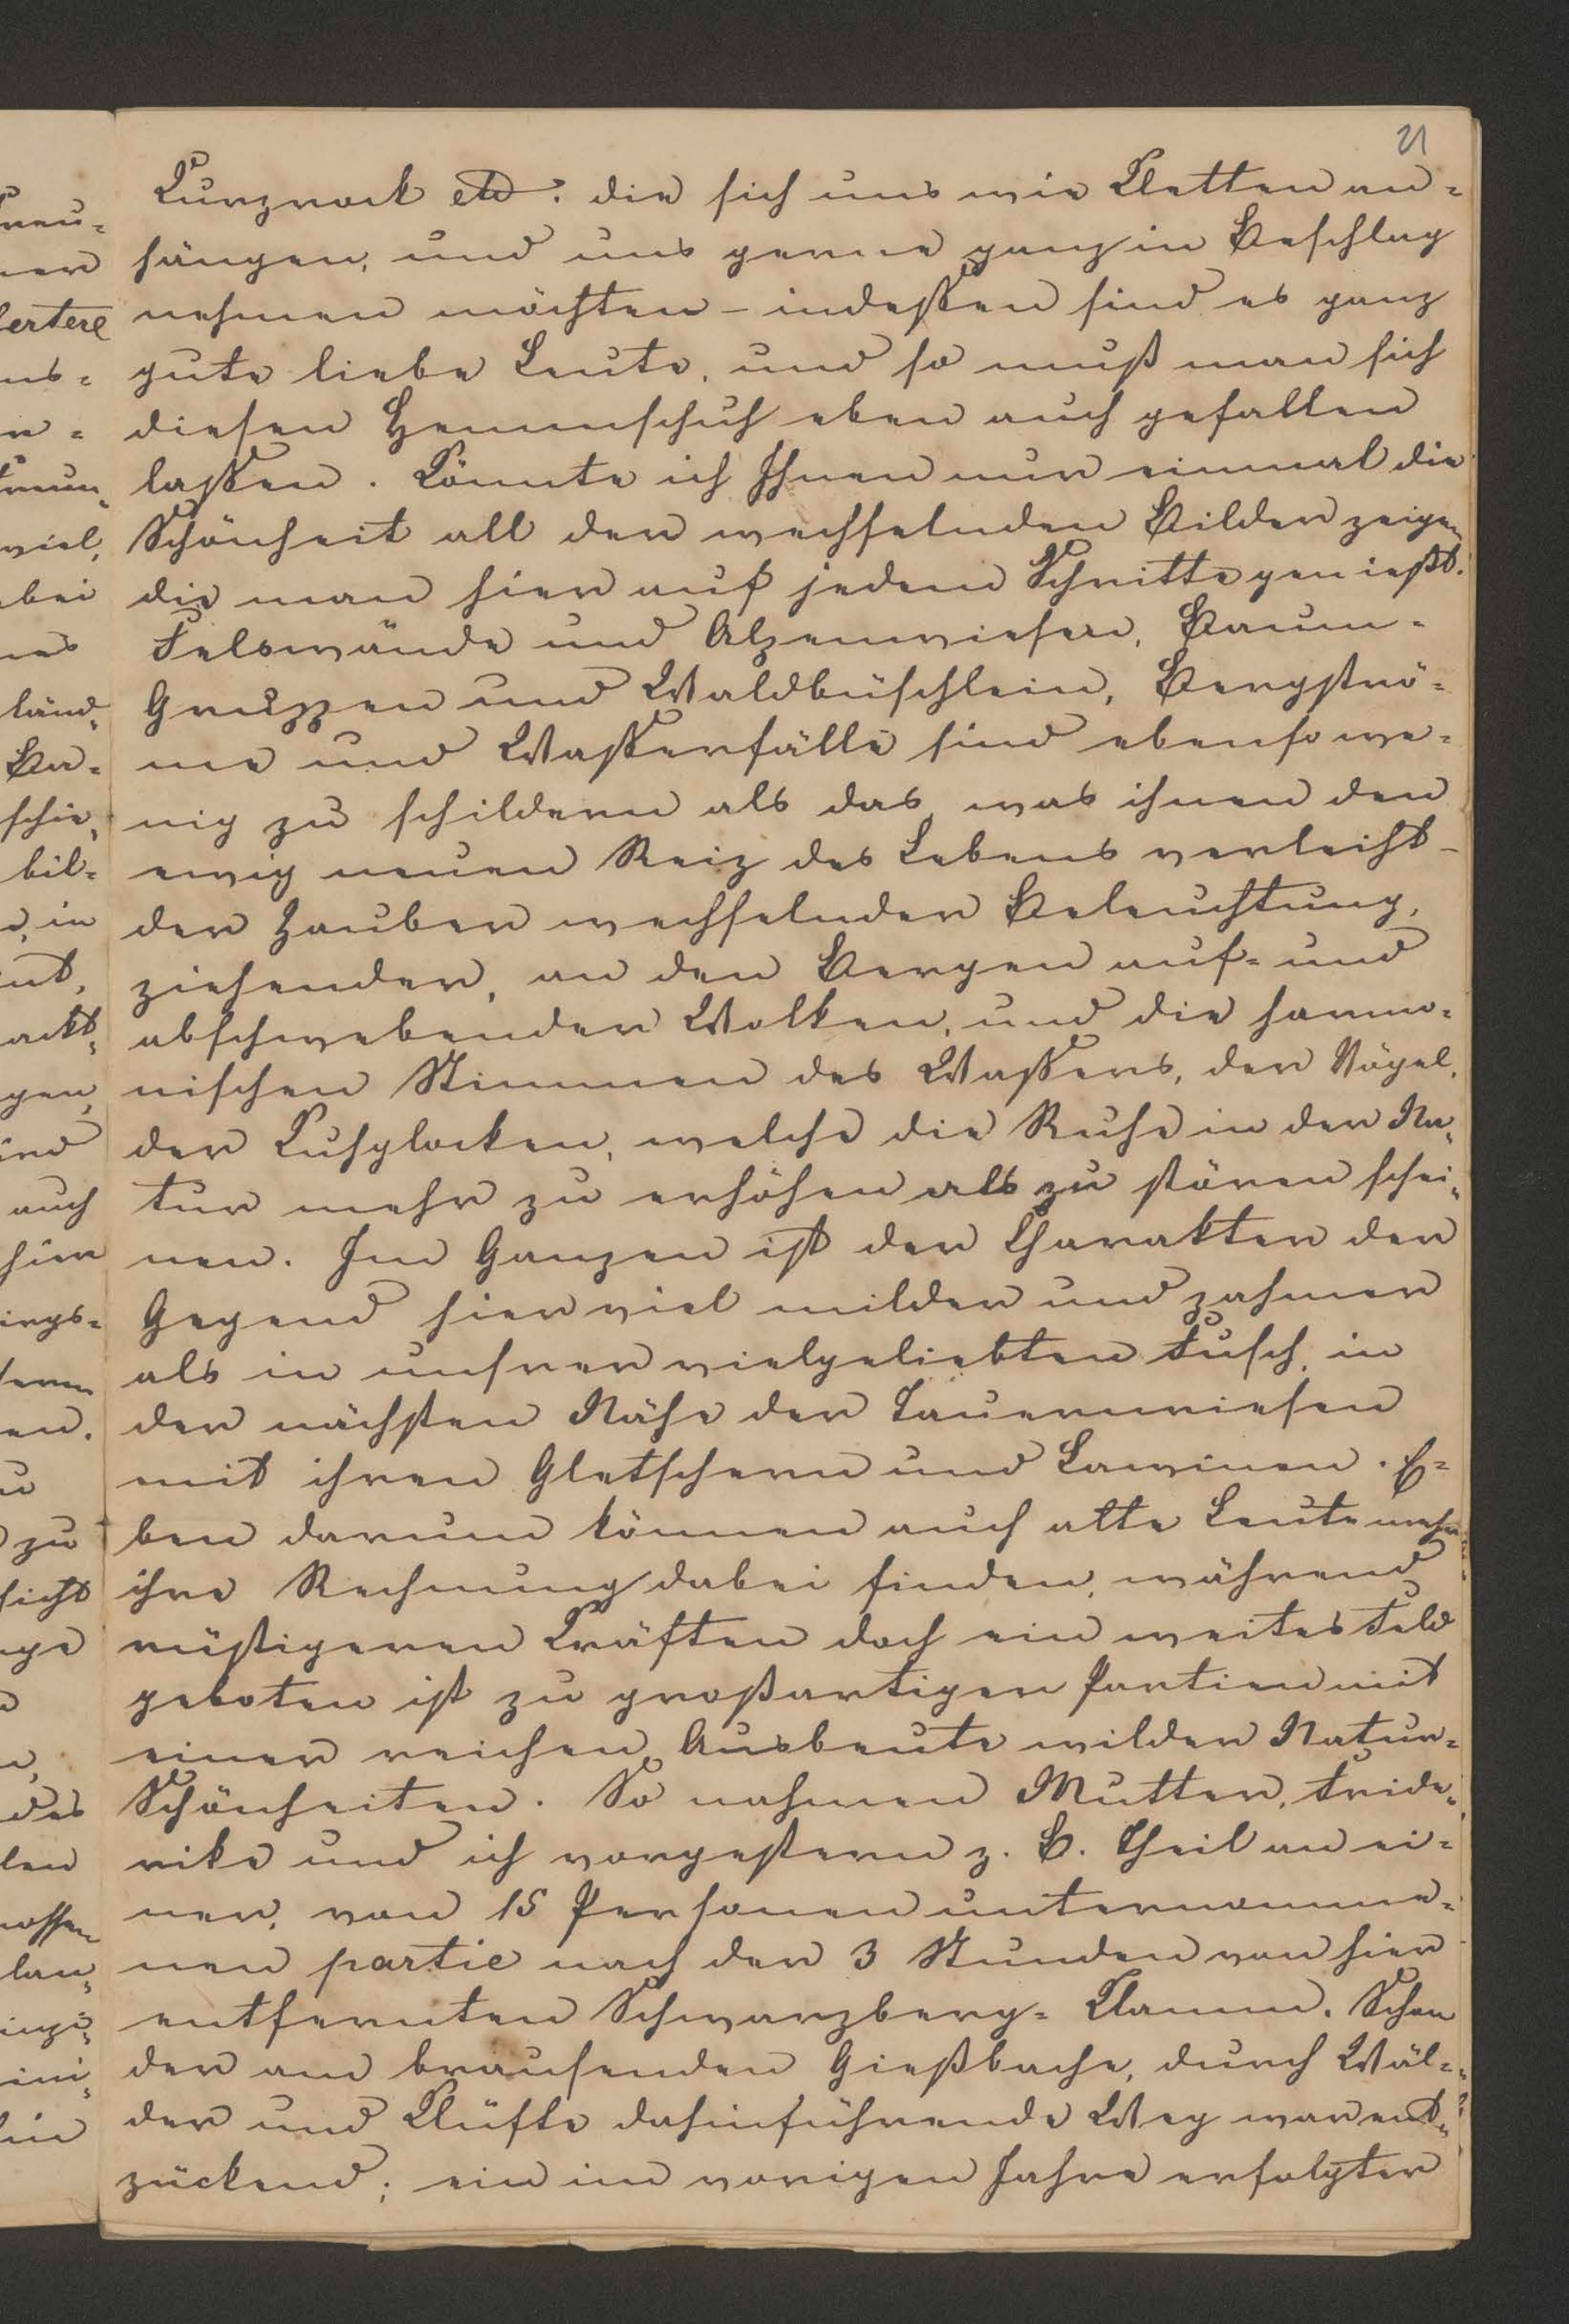 21
Kurzrock etc: die sich uns wie Kletten an-
hängen, und uns gerne ganz in Beschlag
nehmen möchten – indeßen sind es ganz
gute liebe Leute, und so muß man sich
diesen Hemmschuh eben auch gefallen
laßen. Könnte ich Ihnen nur einmal die
Schönheit all der wechselnden Bilder zeigen
die man hier auf jedem Schritte genießt.
Felswände und Alpenwiesen, Baum-
Gruppen und Waldbüschlein, Bergströ-
me und Waßerfälle sind ebenso we-
nig zu schildern als das, was ihnen den
ewig neuen Reiz des Lebens verleiht –
der Zauber wechselnder Beleuchtung,
ziehender, an den Bergen auf- und
abschwebender Wolken, und die harmo-
nischen Stimmen des Waßers, der Vögel,
der Kuhglocken, welche die Ruhe in der Na-
tur mehr zu erhöhen als zu stören schei-
nen. Im Ganzen ist der Charakter der
Gegend hier viel milder und zahmer
als in unsrer vielgeliebten Fusch, in
der nächsten Nähe der Tauernriesen
mit ihren Gletschern und Lawinen. E-
ben darum können auch alte Leute mehr
ihre Rechnung dabei finden, während
rüstigeren Kräften doch ein weites Feld
geboten ist zu großartigen Partien mit
einer reichen Ausbeute wilder Natur-
Schönheiten. So nahmen Mutter, Fride-
rike und ich vorgestern z. B. Theil an ei-
ner, von 15 Personen unternomme-
nen partie nach der 3 Stunden von hier
entfernten Schwarzberg-Klamm. Schon
der am brausenden Gießbache, durch Wäl-
der und Klüfte dahinführende Weg war ent-
zückend; ein im vorigen Jahre erfolgter